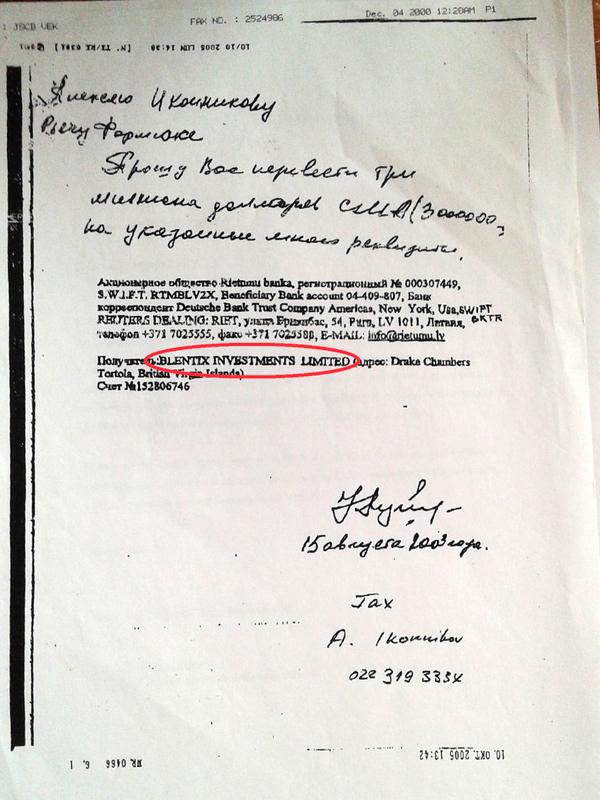 : JSCB VEK FAX NO. : 2524986 Dec. 04 2000 12:20AM P1
10/10 2005 LUN 14:38 [N. TX/RX 6381]
Алексею Иконникову
Прошу Вас перевести три
миллиона долларов США (3000000)
на указанные мною реквизиты.
Акционерное общество Rietumu banka, регистрационный № 000307449,
S.W.I.F.T. RTMBLV2X, Beneficiary Bank account 04-409-807, Банк
корреспондент Deutsche Bank Trust Company Americas, New York, Usa, SWIFT
BKTR
REUTERS DEALING: RIET, улица Бривибас, 54, Рига, LV 1011, Латвия,
телефон +371 7025555, факс +371 7025588, E-MAIL: info@rietumu.lv
Получатель: BLENTIX INVESTMENTS LIMITED (адрес: Drake Chambers
Tortola, British Virgin Islands)
Счет №152806746
15 августа 2003 года.
Fax
A. Ikonnikov
022 319 3334
10. OKT. 2005 13:42
NR. 0466 P. 1